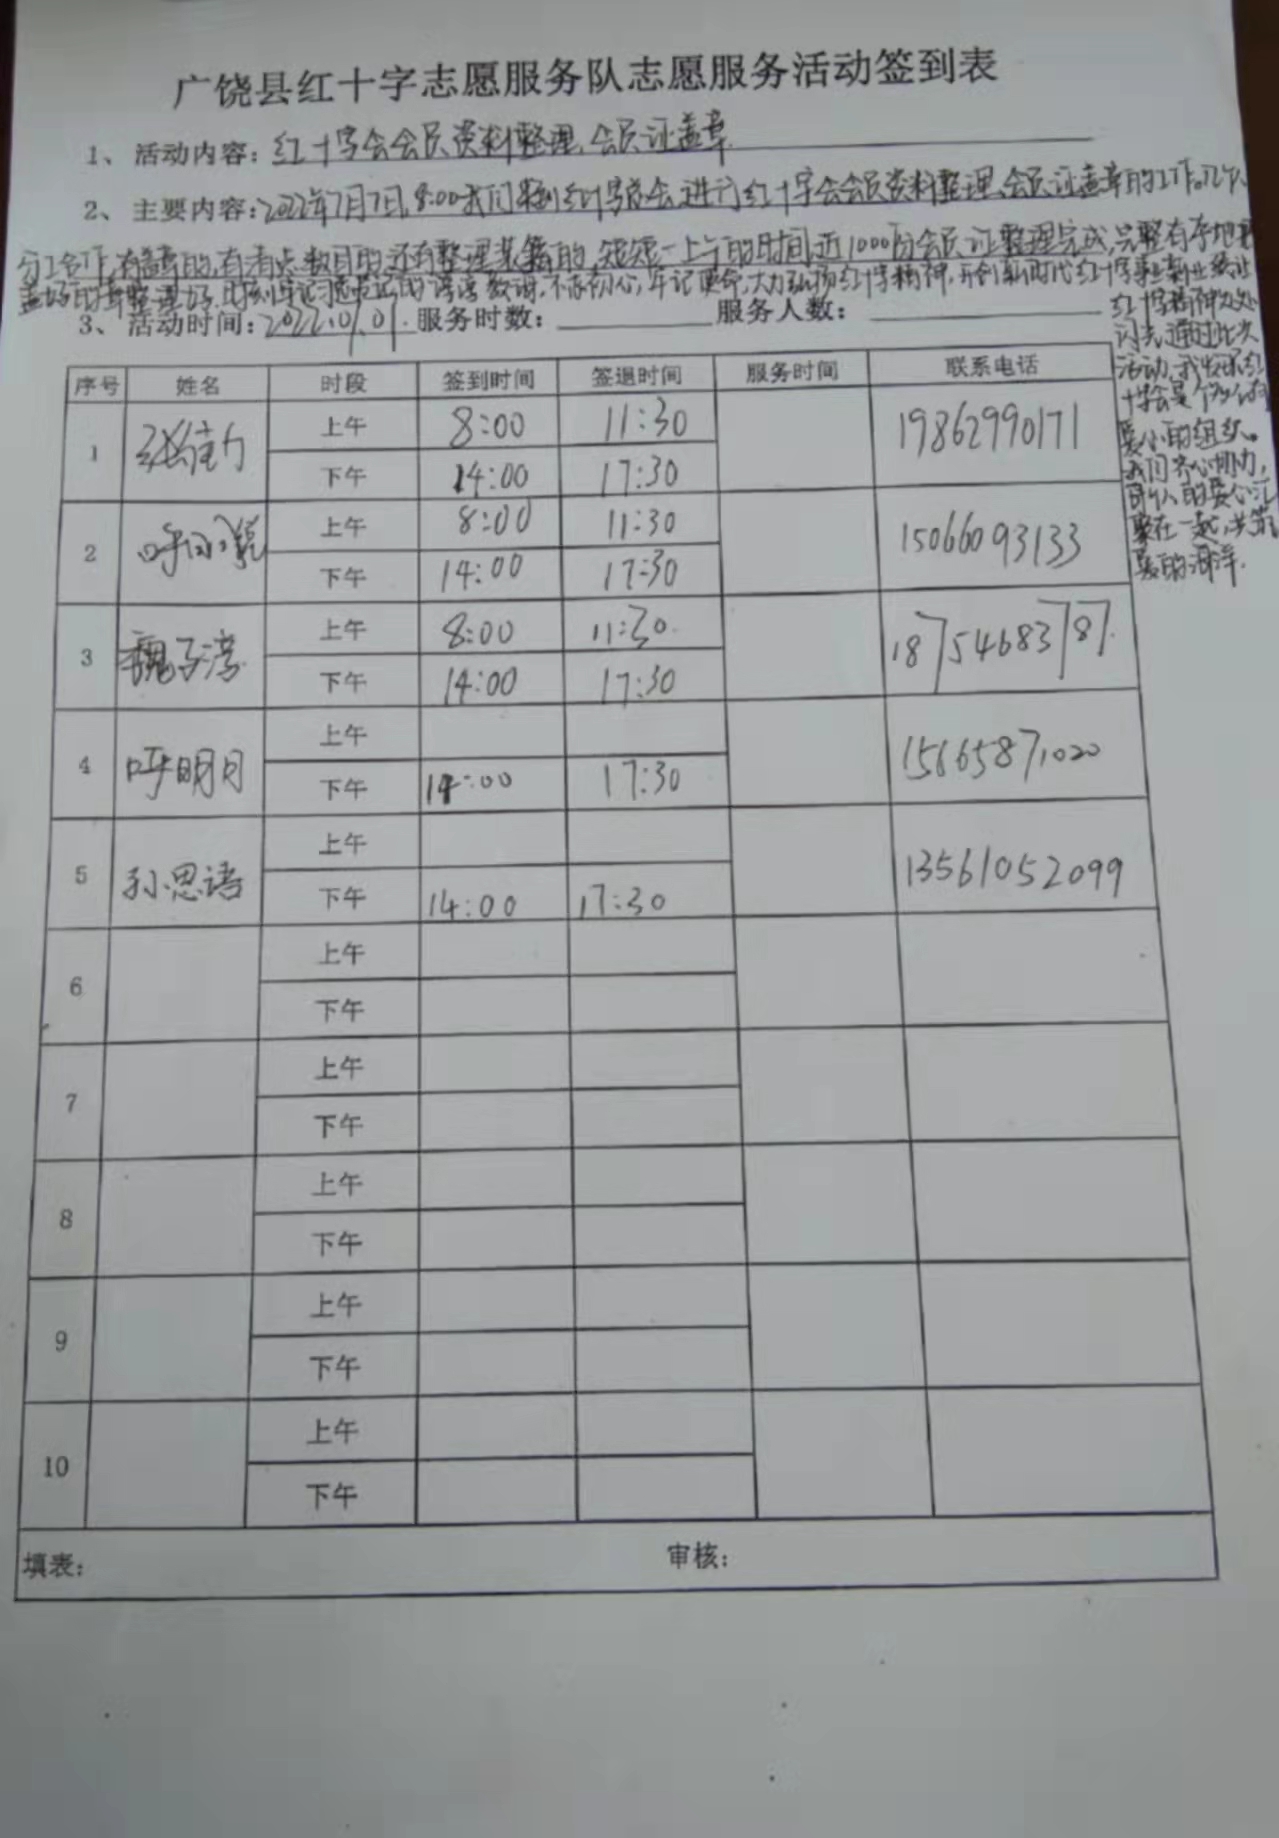 广饶县红十字志愿服务队志愿服务活动签到表
1、活动内容：红十字会会员资料整理、会员证盖章
2、主要内容：2022年7月7日，8:00我们来到红十字会进行红十字会会员资料整理、会员证盖章的工作。
分工合作，有盖章的，有清点数目的，还有整理装箱的，短短一上午的时间，近1000份会员证整理完成，
盖好的章整理好，不忘初心，牢记使命，大力弘扬红十字精神，开创新时代红十字事业
3、活动时间：2022.07.07. 服务时数： 服务人数：
红十字精神处处
闪光，通过此次
活动，我发现红
十字会是个
爱心的组织。
我们齐心协力，
每个人的爱心汇
聚在一起，
爱的海洋.
序号 姓名 时段 签到时间 签退时间 服务时间 联系电话
1 上午 8:00 11:30 19862990171
下午 14:00 17:30
2 上午 8:00 11:30 15066093133
下午 14:00 17:30
3 魏子涝 上午 8:00 11:30. 18754683787.
下午 14:00 17:30
4 呼明月 上午 15665871020
下午 14:00 17:30
5 孙思语 上午 13561052099
下午 14:00 17:30
6 上午
下午
7 上午
下午
8 上午
下午
9 上午
下午
10 上午
下午
填表： 审核：